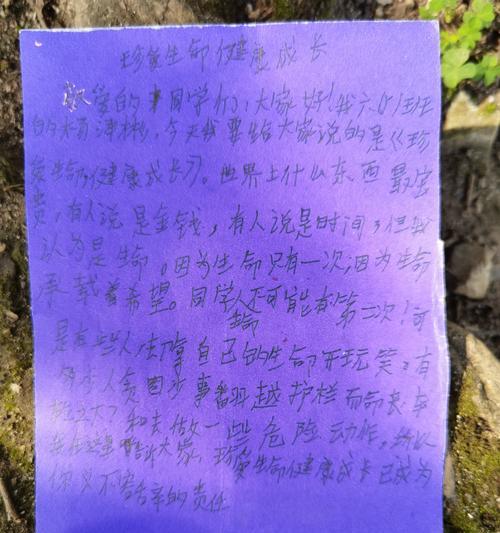 珍爱生命健康成长
敬爱的同学们，大家好！我六01班
的，今天我要给大家说的是《珍
爱生命，健康成长》。世界上什么东西最宝
贵，有人说是金钱，有人说是时间，但我
认为是生命。因为生命只有一次，因为生命
承载着希望。同学人还可能有第二次！可
生命
是有些人去拿自己的生命开玩笑。有
人翻越护栏而命丧车
和去做一些危险动作，所以
我在这里告诉大家，珍爱生命健康成长已成为
你义不容辞的责任